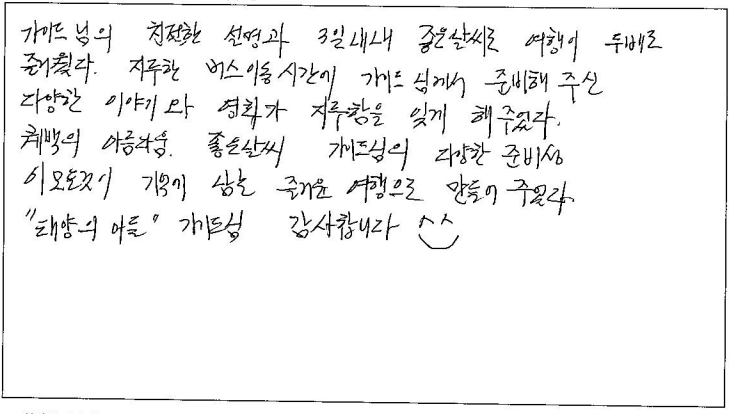 가이드님의 친절한 설명과 3일내내 좋은날씨로 여행이 두배로
즐거웠다. 지루한 버스이동시간에 가이드님께서 준비해 주신
다양한 이야기와 영화가 지루함을 잊게 해주었다.
태백의 아름다움. 좋은날씨 가이드님의 다양한 준비성
이모든것이 기억에 남는 즐거운 여행으로 만들어 주었다.
"태양의 아들" 가이드님 감사합니다 ^^